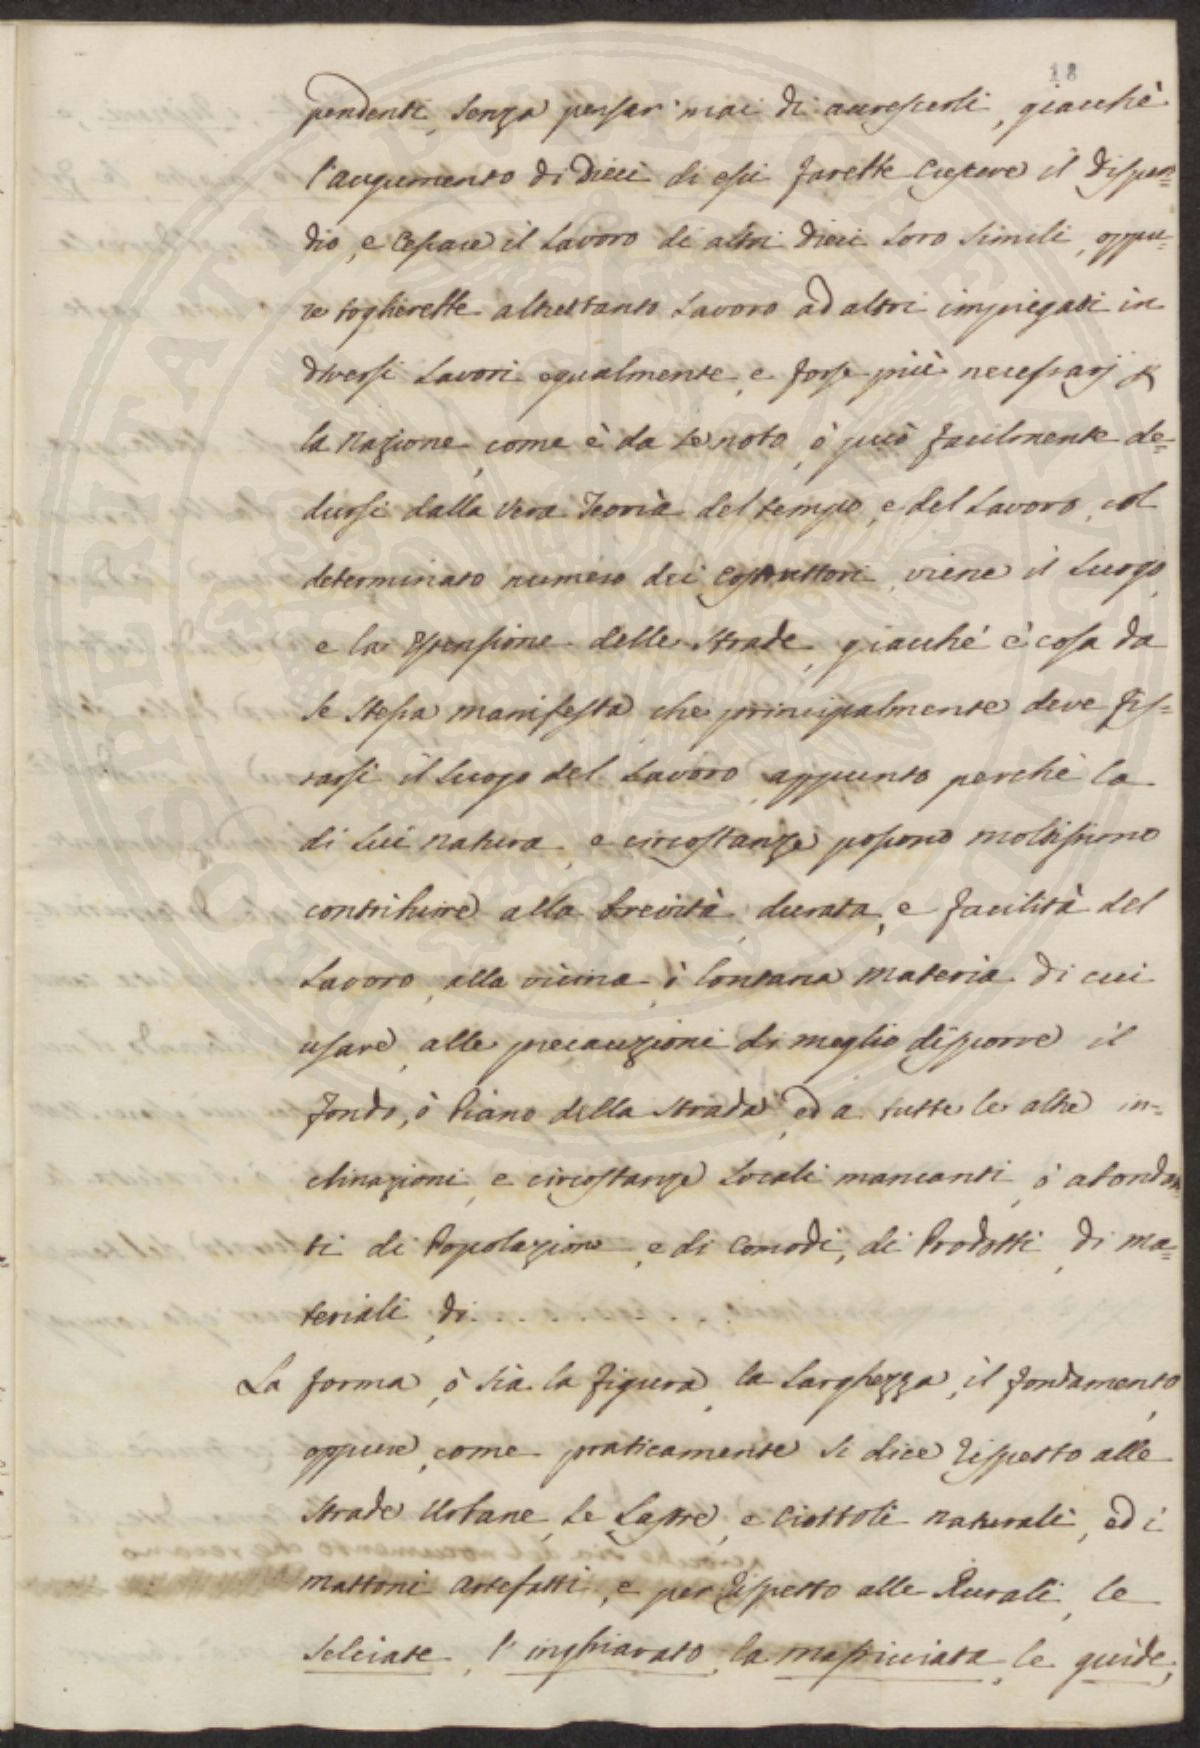 18
pendenti, senza pensar mai di accrescerli, giacchè
l'augumento di Dieci di essi farebbe crescere il dispen=
dio, e cessare il lavoro di altri dieci loro simili, oppu=
re toglierebbe altrettanto lavoro ad altri impiegati in
diversi lavori egualmente, e forse più necessarj
la Nazione, come è da se noto, ò può facilmente de=
dursi dalla vera Teorìa del tempo, e del Lavoro, col
determinato numero dei Costruttori, viene il luogo,
e la Estensione delle Strade, giacchè è cosa da
se stessa manifesta, che principalmente deve fis=
sarsi il luogo del Lavoro, appunto perchè la
di lui natura, e circostanze possono moltissimo
contribuire alla brevità, durata, e facilità del
Lavoro, alla vicina, ò lontana materia di cui
usare, alle precauzioni di meglio disporre il
fondo, ò Piano della strada, ed a tutte le altre in=
clinazioni, e circostanze locali mancanti, ò abondan
ti di Popolazione, e di comodi, di Prodotti, di ma=
teriali, di . . . . .
La forma, ò sia la figura, la larghezza, il fondamento,
oppure, come praticamente si dice rispetto alle
strade Urbane, le Lastre, e Ciottoli naturali, ed i
mattoni artefatti, e per rispetto alle Rurali, le
selciate, l'inghiarato, la massicciata, le guide,
PROSPERITATI PUBLICAE AUGENDAE